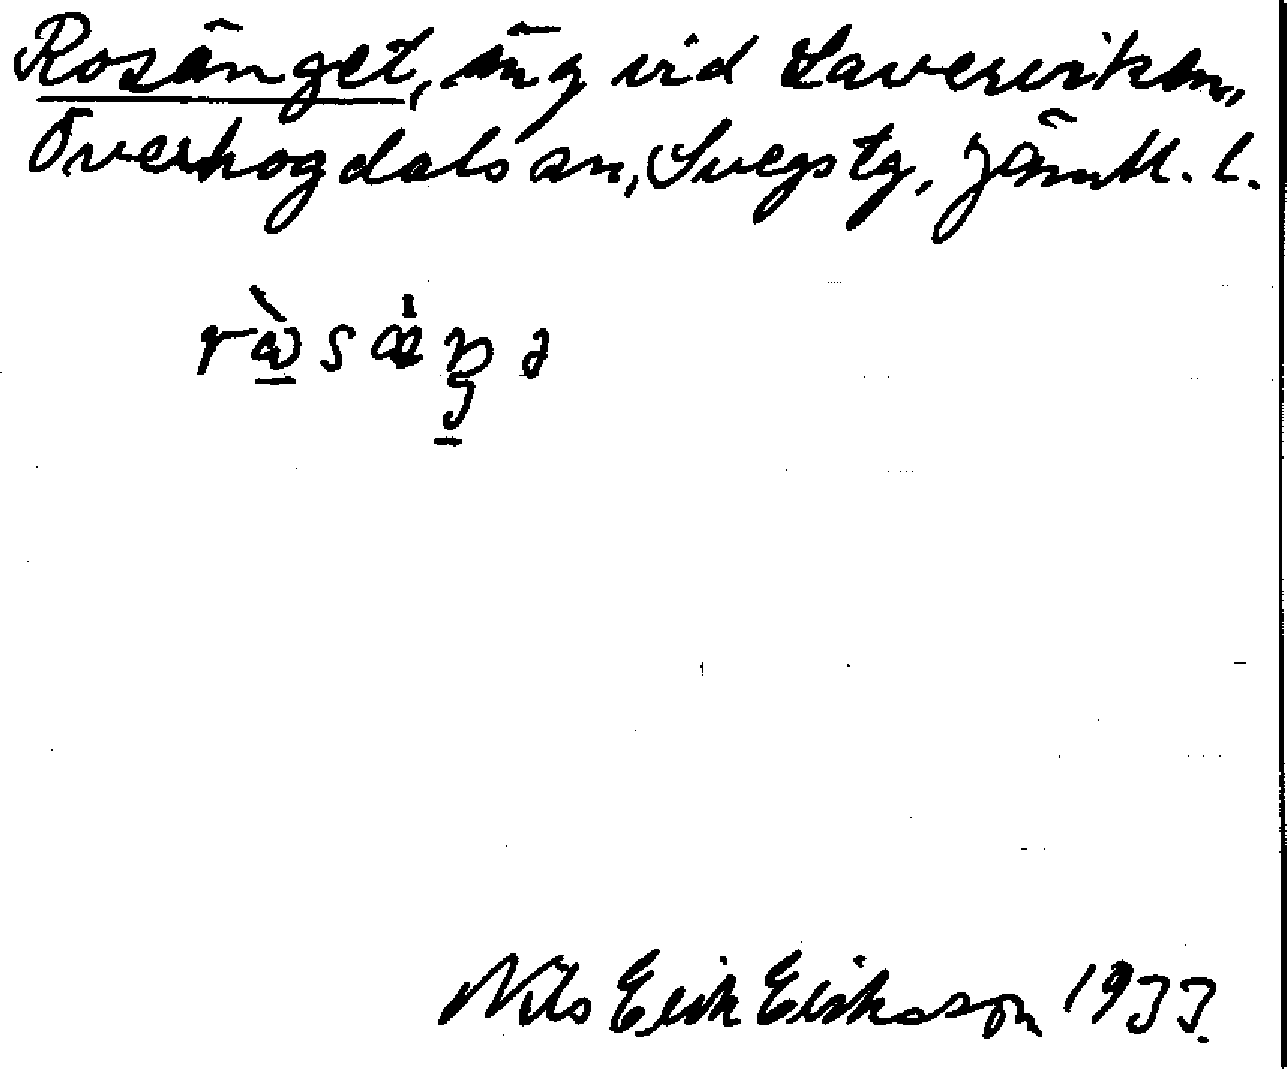 Rosänget, äng vid Laverviken,
Överhogdals sn, Svegs tg, Jämtl. l.
Nils Erik Eriksson 1933.